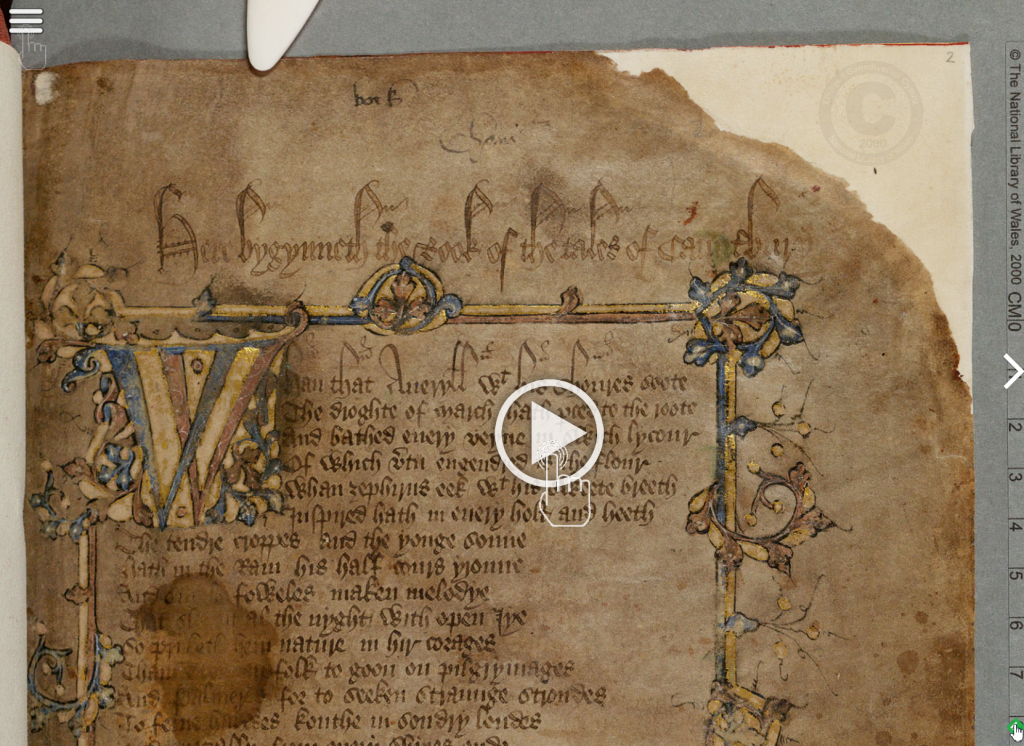 book
2
Here bygynneth the Book of the tales of Caunt̄bury
Whan that Aueryłł wᵗ his shoures soote
The droghte of march hath perced to the roote
And bathed euery veyne in swich lycour
Of which v̄tu engendred is the flour
Whan zephirus eek wᵗ his sweete breeth
Inspired hath in euery holt and heeth
The tendre croppes and the yonge sonne
Hath in the Ram his half cours yronne
And foweles maken melodye
That al the nyght with open Iye
So priketh hem nature in hir corages
Than folk to goon on pilgrymages
And Palmeres for to seeken straunge strondes
To ferne halwes kouthe in sondry londes
© The National Library of Wales, 2000 CM|0
2
3
4
5
6
7
C
2000